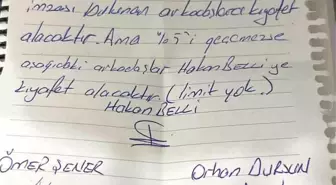 imzası bulunan arkadaşlara kıyafet
alacaktır. Ama %51'i geçmezse
aşağıdaki arkadaşlar Hakan BELLİ'ye
kıyafet alacaktır. (limit yok.)
Hakan BELLİ
ÖMER ŞENER
Orhan DURSUN